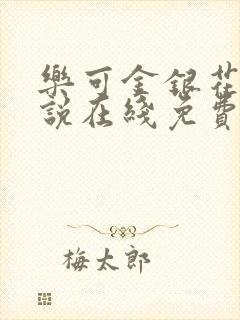 樂可金銀花
說在綫免費
梅太郎